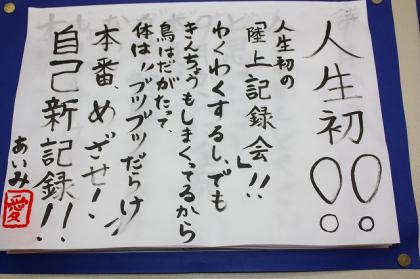 人生初!!
人生初の
「陸上記録会」!!
わくわくするし、でも
きんちょうもしまくってるから
鳥はだがたって、
体は"ブツブツだらけ"
本番、めざせ!
自己新記録!!
あいみ
愛